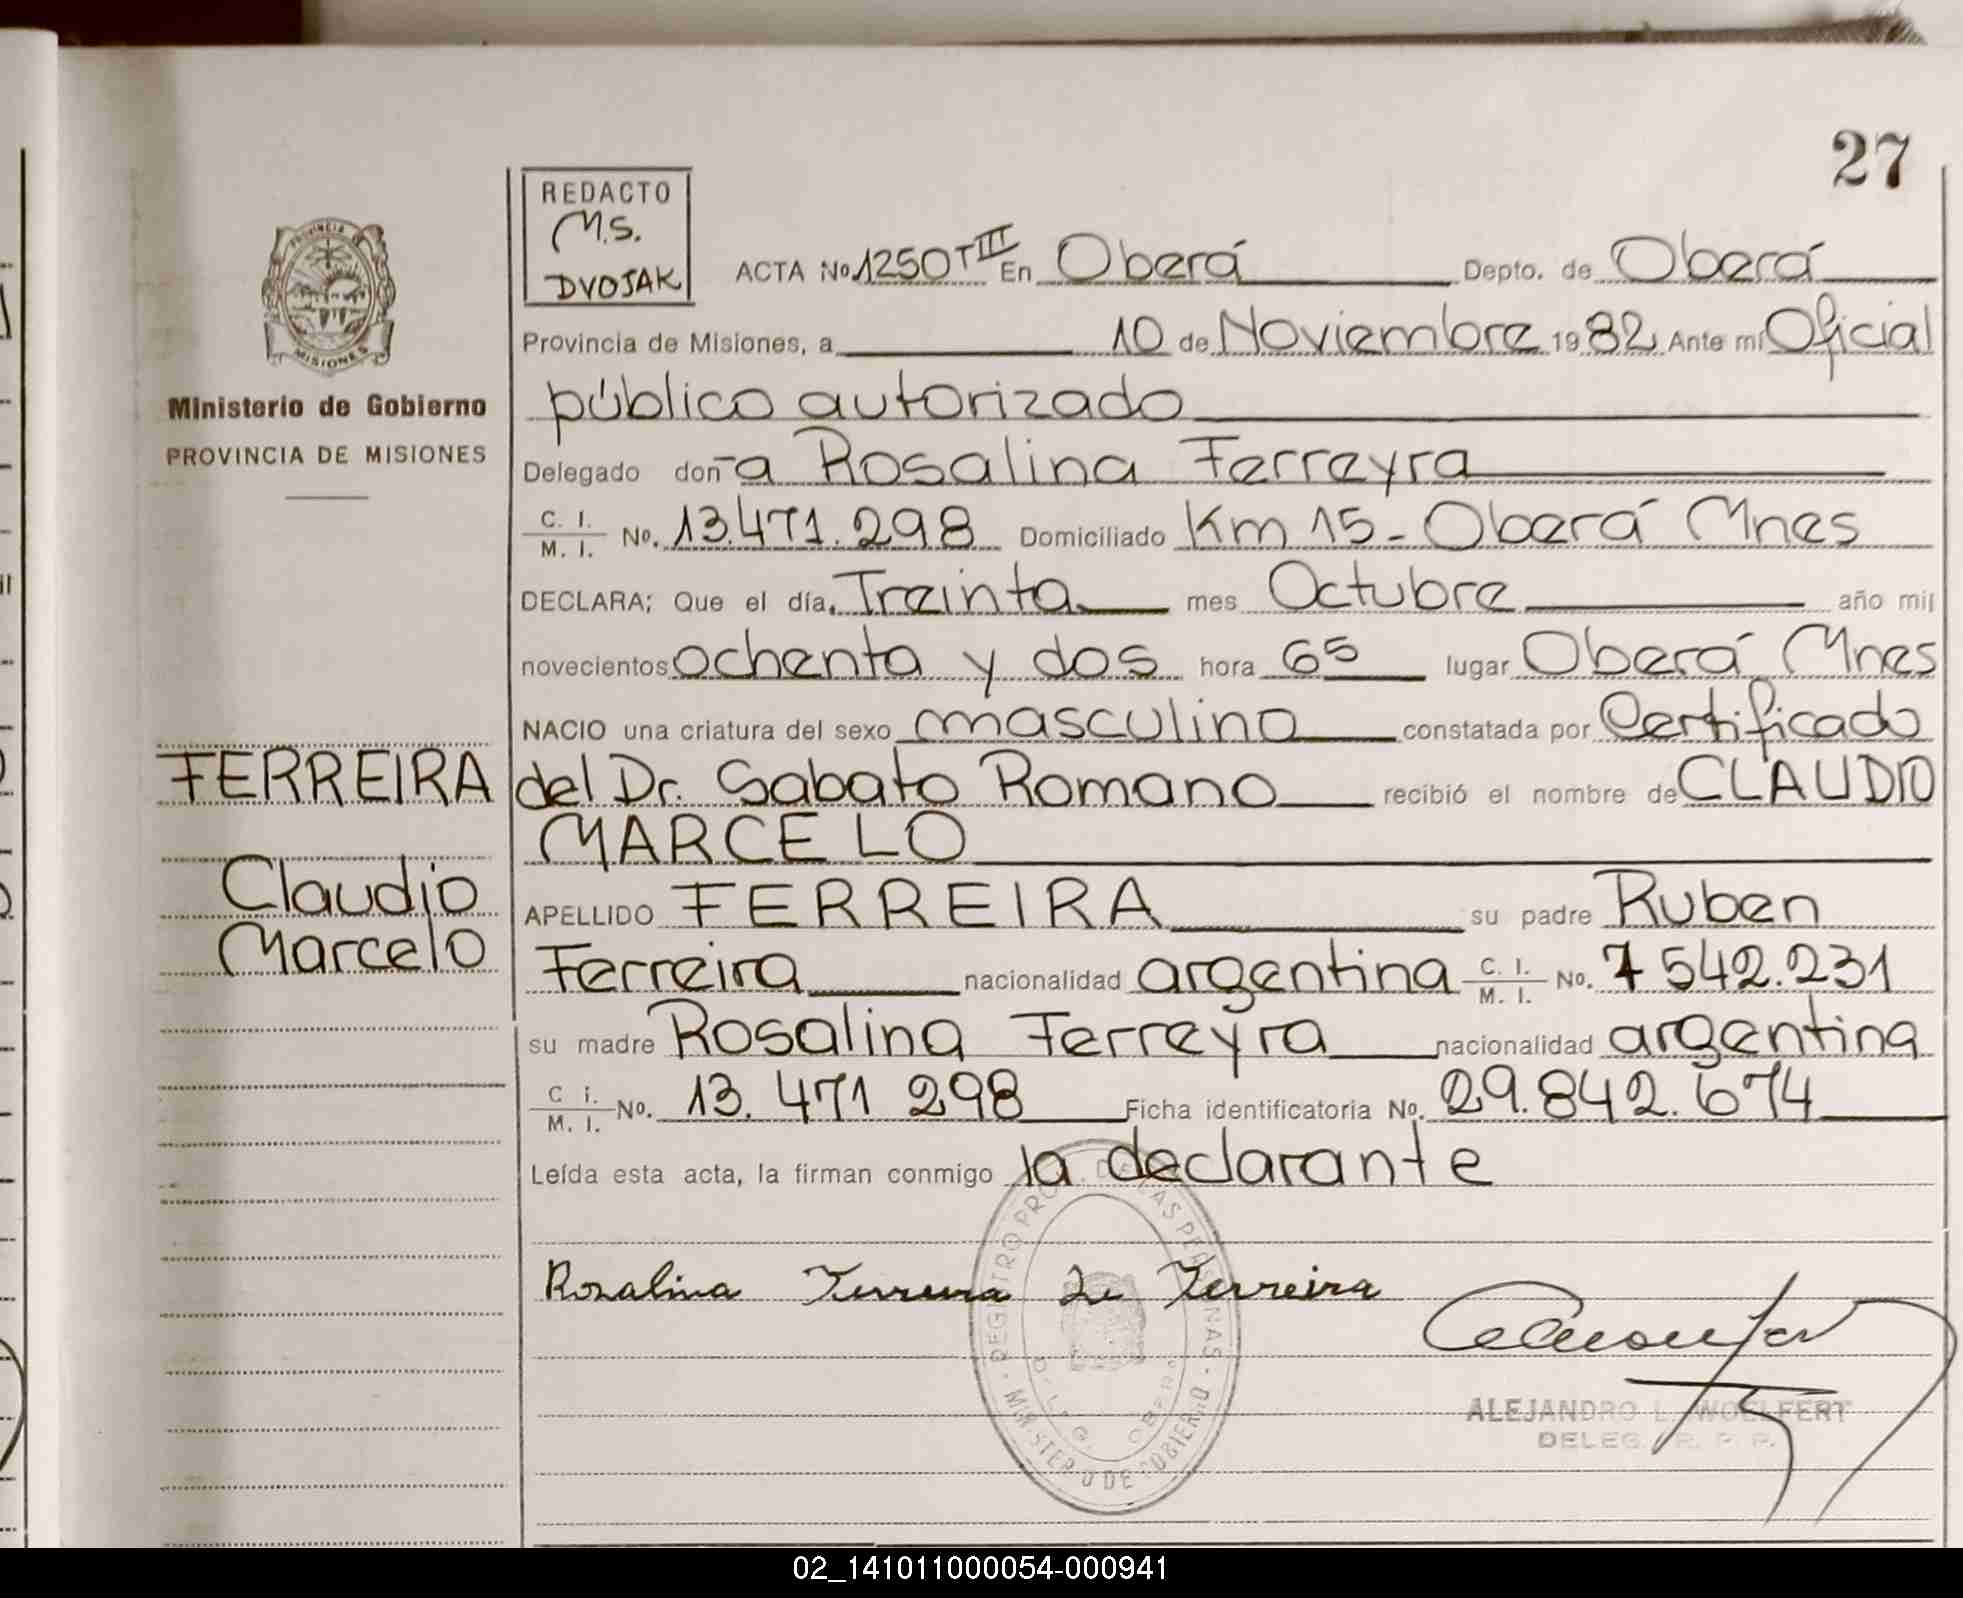 27
REDACTO
M.S.
DVOJAK
ACTA No 1250 T III En Oberá Depto. de Oberá
Provincia de Misiones, a 10 de Noviembre 1982 Ante mí Oficial
público autorizado
Delegado doña Rosalina Ferreyra
C. I. M. I. No. 13.471.298 Domiciliado Km 15 - Oberá Mnes
DECLARA; Que el día, Treinta mes Octubre año mil
novecientos ochenta y dos hora 6 55 lugar Oberá Mnes
NACIO una criatura del sexo masculino constatada por Certificado
del Dr. Sabato Romano recibió el nombre de CLAUDIO
MARCELO
APELLIDO FERREIRA su padre Ruben
Ferreira nacionalidad argentina C. I. M. I. No. 7 542.231
su madre Rosalina Ferreyra nacionalidad argentina
C i. M. I. No. 13.471 298 Ficha identificatoria No. 29.842.674
Leída esta acta, la firman conmigo la declarante
PROVINCIA DE
MISIONES
Ministerio de Gobierno
PROVINCIA DE MISIONES
FERREIRA
Claudio
Marcelo
Rosalina Ferreira de Ferreira
REGISTRO PROV. DE LAS PERSONAS
MINISTERIO DE GOBIERNO
ALEJANDRO L. WOELFERT
DELEG. R. P. P.
02_141011000054-000941